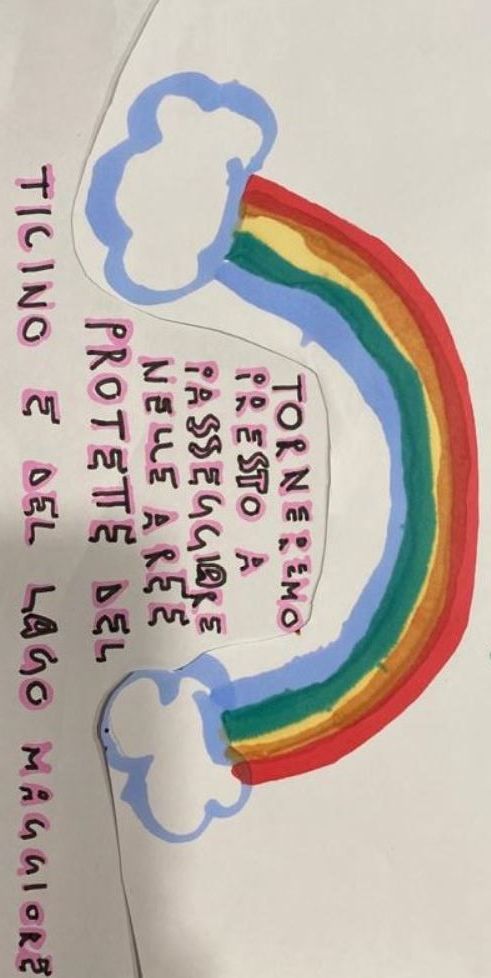 TORNEREMO
PRESTO A
PASSEGGIARE
NELLE AREE
PROTETTE DEL
TICINO E DEL LAGO MAGGIORE